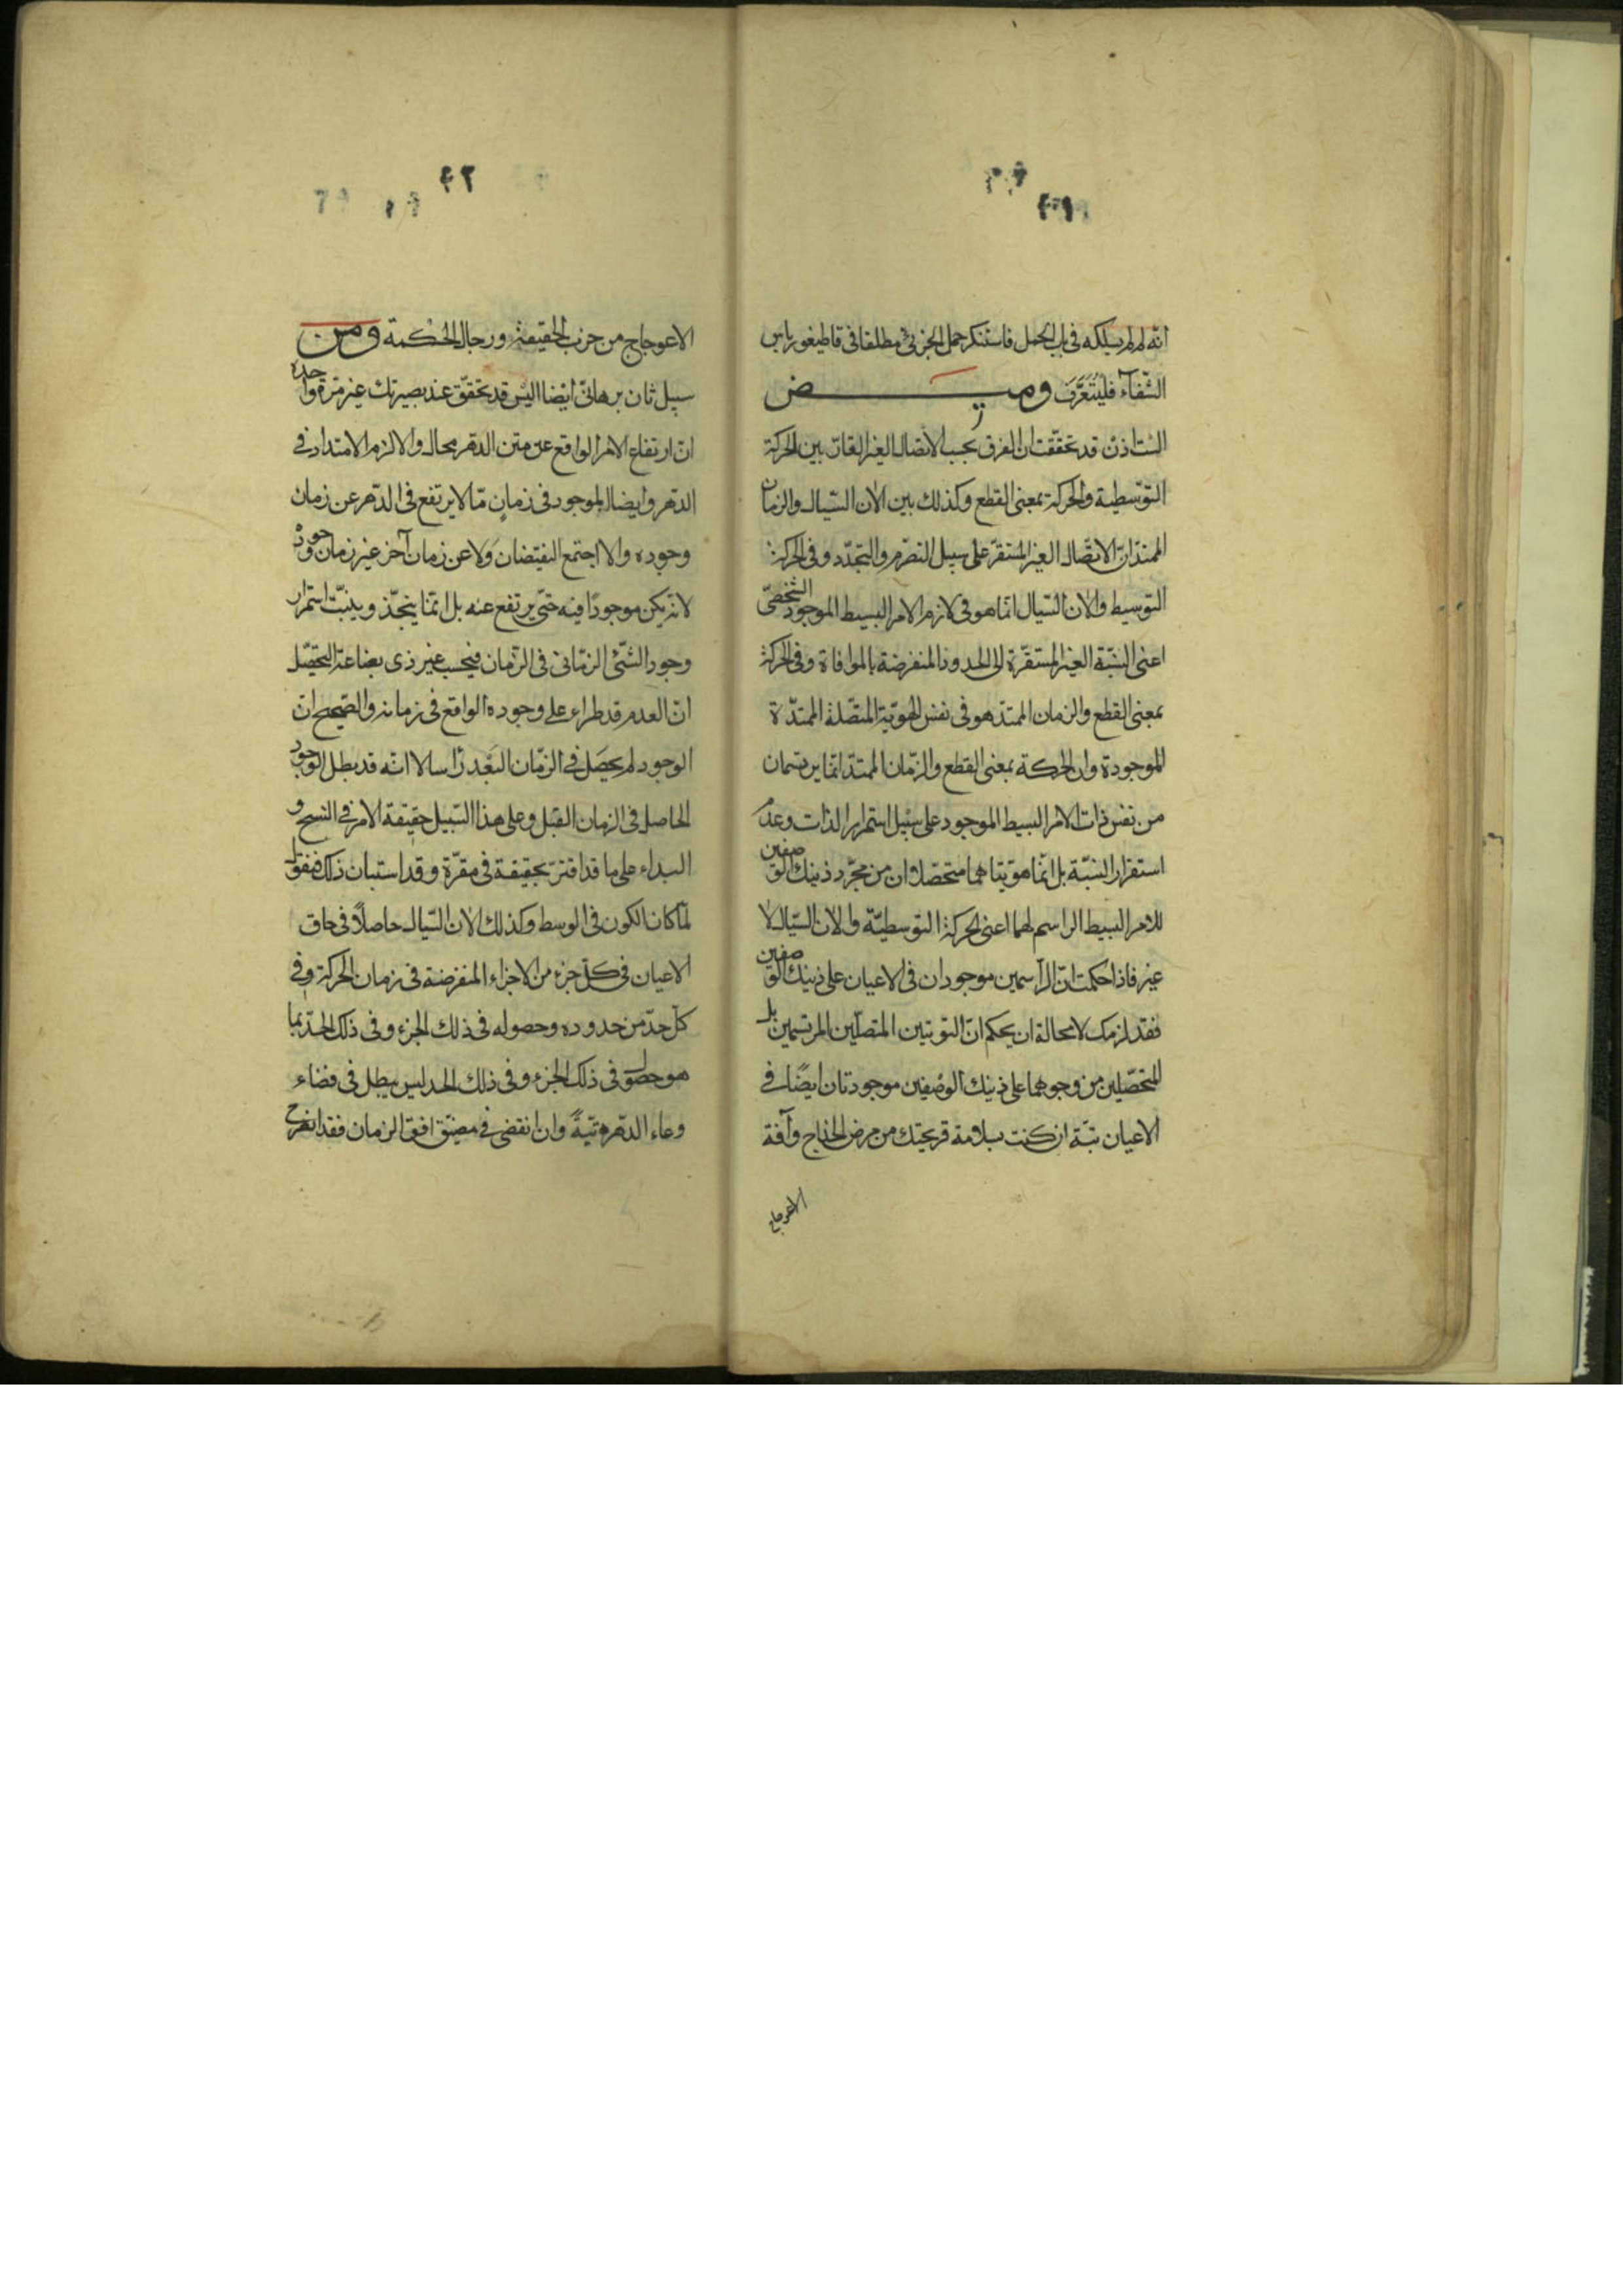 انه لم لم يسلكه فى باب الحمل فاستنكر حمل الجزئى مطلقا فى قاطيغورياس
الشفآء فليتعرف وميض
الست اذن قد تحققت ان الفرق بحسب الاتصال الغير القار بين الحركة
التوسطية والحركة بمعنى القطع وكذلك بين الآن السيال والزمان
الممتد ان الاتصال الغير المستقر على سبيل التصرم والتجدد وفى الحركة
التوسيط والآن السيال انما هو فى لازم الامر البسيط الموجود الشخصى
اعنى النسبة الغير المستقرة الى الحدود المنفرضة بالموافاة وفى الحركة
بمعنى القطع والزمان الممتد هو فى نفس الهوية المتصلة الممتدة
الموجودة وان الحركة بمعنى القطع والزمان الممتد انما يرتسمان
من نفس ذات الامر البسيط الموجود على سبيل استمرار الذات وعدم
استقرار النسبة بل انما هويتاهما متحصلتان من مجرد ذينك الوصفين
للامر البسيط الراسم لهما اعنى الحركة التوسطية والآن السيال لا
غير فاذا حكمت ان الراسمين موجودان فى الاعيان على ذينك الوصفين
فقد لزمك لا محالة ان يحكم ان الهويتين المتصلين المرتسمين بل
المتحصلين من وجوهما على ذينك الوصفين موجودتان ايضا فى
الاعيان بتة ان كنت بسلامة قريحتك من مرض الخداج وآفة
الاعوجاج
٤٢
الاعوجاج من حزب الحقيقة ورجال الحكمة ومن
سبيل ثان برهانى ايضا اليس قد تحقق عند بصيرتك غير مرة واحدة
ان ارتفاع الامر الواقع عن متن الدهر محال والا لزم الامتداد فى
الدهر وايضا الموجود فى زمان ما لا يرتفع فى الدهر عن زمان
وجوده والا اجتمع النقيضان ولا عن زمان آخر غير زمان وجوده
لانه يكن موجودا فيه حتى يرتفع عنه بل انما ينجذ وينبت استمرار
وجود الشئ الزمانى فى الزمان فيحسب غير ذى بضاعة التحصل
ان العدم قد طراء على وجوده الواقع فى زمانه والصحيح ان
الوجود لم يحصل فى الزمان البعد راسا لا انه قد بطل الوجود
الحاصل فى الزمان القبل وعلى هذا السبيل حقيقة الامر فى النسخ و
البداء على ما قد اقتر تحقيقه فى مقره وقد استبان ذلك فنقول
لما كان الكون فى الوسط وكذلك الآن السيال حاصلا فى حاق
الاعيان فى كل جزء من الاجزاء المنفرضة فى زمان الحركة وفى
كل حد من حدوده وحصوله فى ذلك الجزء وفى ذلك الحد بما
هو حصوله فى ذلك الجزء وفى ذلك الحد ليس يبطل فى فضاء
وعاء الدهر بتية وان انقضى فى مضيق افق الزمان فقد انصرح